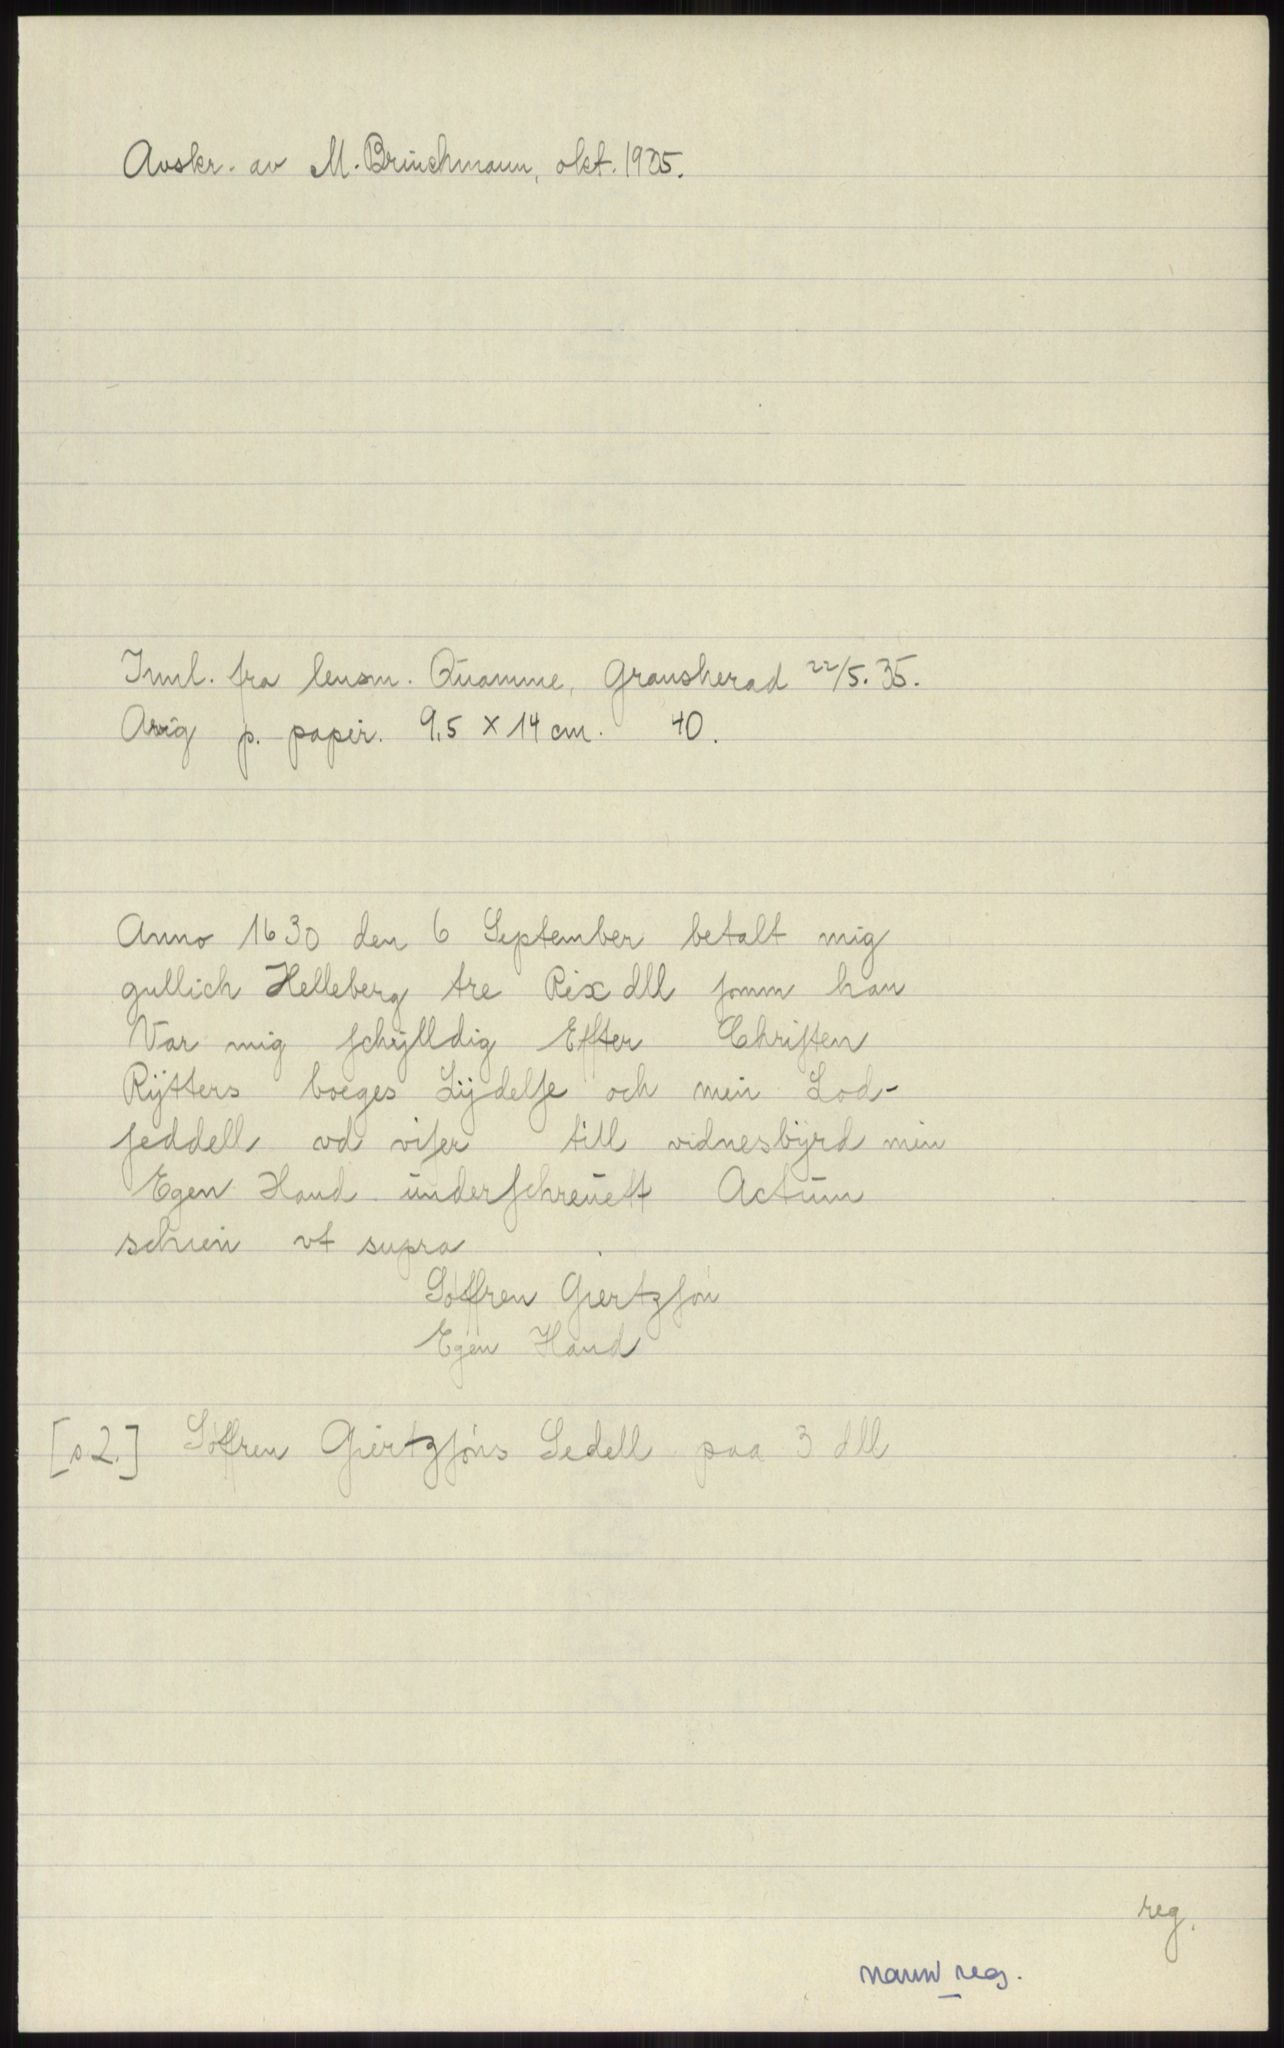 Avskr. av M. Brinchmann, okt. 1935.
Innl. fra lensm. Quamme, Gransherad 22/5. 35.
Orig p. papir. 9,5 x 14 cm. 40.
Anno 1630 den 6 September betalt mig
gullich Helleberg tre Rix dll somm han
Var mig schylldig Effter Christen
Rÿtters boeges Lÿdelse och mein Lod-
seddell vd viser till vidnesbÿrd min
Egen Hand underschreuett Actum
schien vt supra
Söffren Giertzsön
Egen Hand
[s 2.] Söffren Giertzsöns Sedell paa 3 dll
reg.
navnreg.